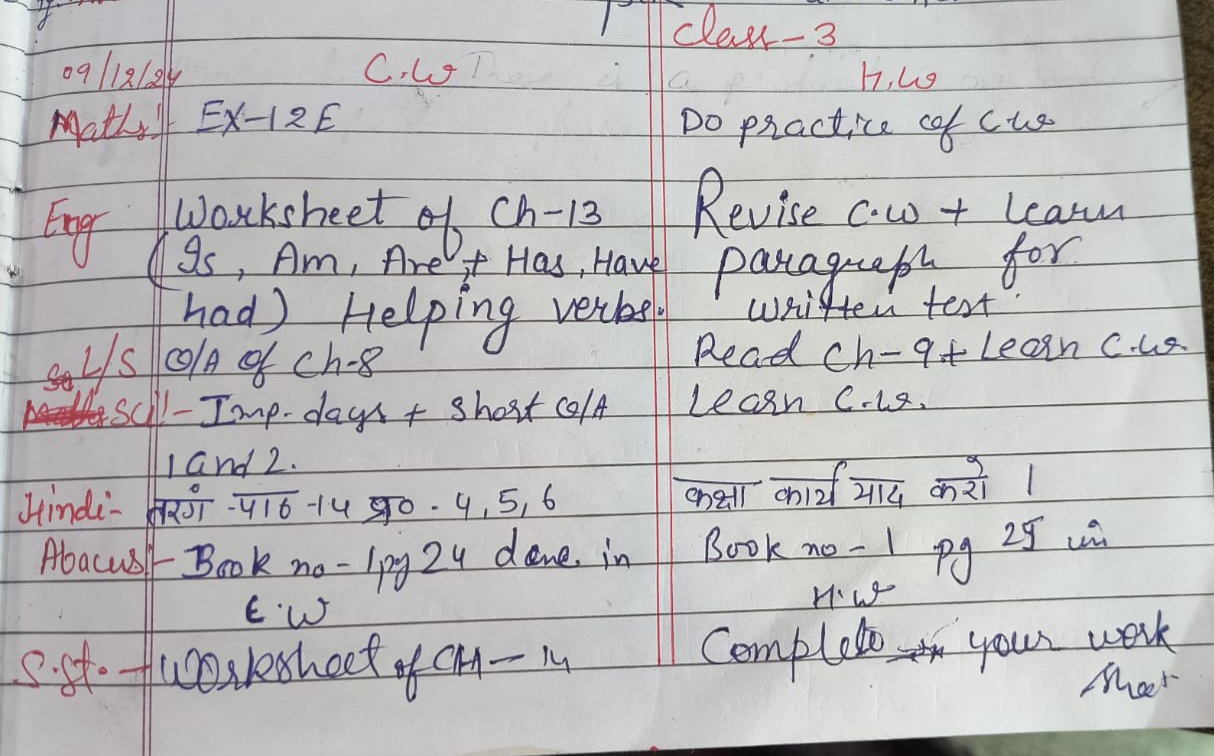 Class-3
09/12/24 C.W H.W
Maths:- EX-12E Do practice of C.W
Eng Worksheet of Ch-13 Revise C.W + learn
(Is, Am, Are, + Has, Have paragraph for
had) Helping verbs. written test.
L/S Q/A of Ch-8 Read Ch-9 + Learn C.W.
SCi:- Imp. days + Short Q/A Learn C.W.
1 and 2.
Hindi- तरंग - पाठ -14 प्र0 - 4, 5, 6 कक्षा कार्य याद करो ।
Abacus:- Book no - 1, pg 24 done in Book no - 1 pg 25 in
C.W H.W
S.St. - Worksheet of CH - 14 Complete your work
sheet